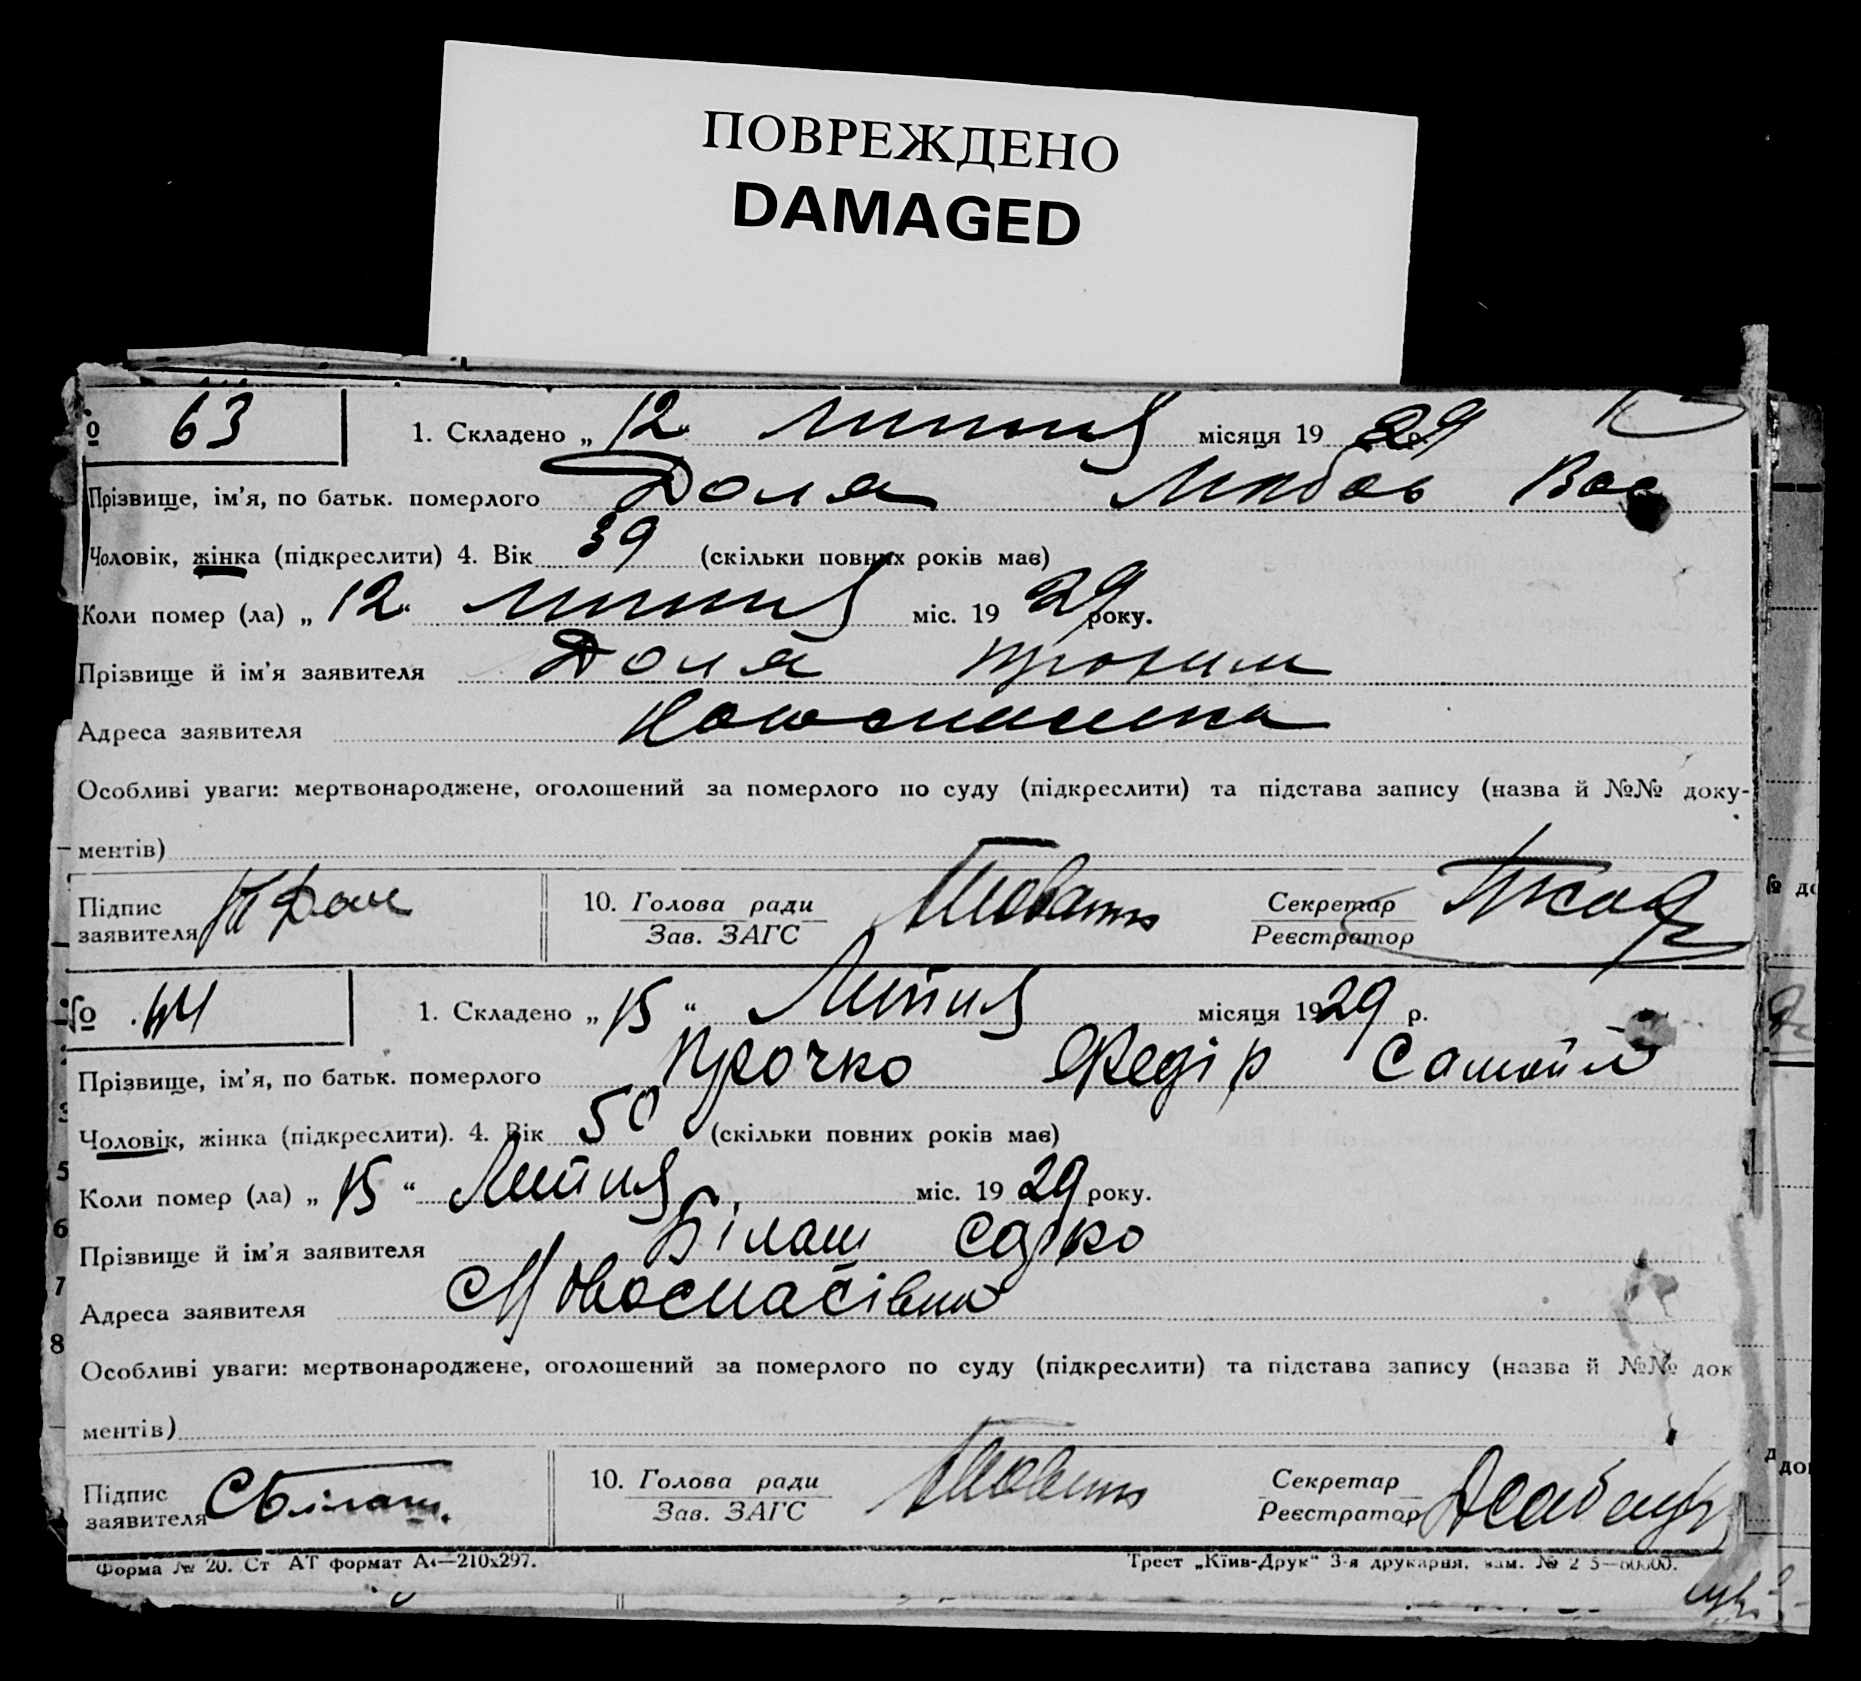 ПОВРЕЖДЕНО
DAMAGED
№ 63
1. Складено „ 12 Липня місяця 19 29 р.
Прізвище, ім'я, по батьк. померлого Доля Любов Вас
Чоловік, жінка (підкреслити) 4. Вік 39 (скільки повних років має)
Коли помер (ла) „ 12 “ Липня міс. 19 29 року.
Прізвище й ім'я заявителя Доля Трохим
Адреса заявителя
Особливі уваги: мертвонароджене, оголошений за померлого по суду (підкреслити) та підстава запису (назва й №№ доку-
ментів)
Підпис
заявителя
10. Голова ради
Зав. ЗАГС
Секретар
Реєстратор
№ 44
1. Складено „ 15 “ Липня місяця 1929 р.
Прізвище, ім'я, по батьк. померлого Прочко Федір Самойл
Чоловік, жінка (підкреслити). 4. Вік 50 (скільки повних років має)
Коли помер (ла) „ 15 “ Липня міс. 19 29 року.
Прізвище й ім'я заявителя Білаш
Адреса заявителя С Новоспасівка
Особливі уваги: мертвонароджене, оголошений за померлого по суду (підкреслити) та підстава запису (назва й №№ док
ментів)
Підпис
заявителя СБілаш.
10. Голова ради
Зав. ЗАГС
Секретар
Реєстратор
Форма № 20. Ст АТ формат А4—210х297.
Трест „Київ-Друк“ 3-я друкарня, зам. №